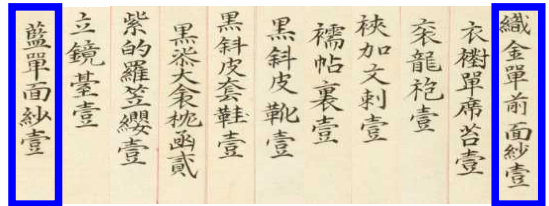 織金單前面紗壹
衣樹單席苔壹
衮龍袍壹
裌加文剌壹
襦帖裏壹
黑斜皮靴壹
黑斜皮套鞋壹
黑漆大衾枕函貳
紫的羅笠纓壹
立鏡臺壹
藍單面紗壹